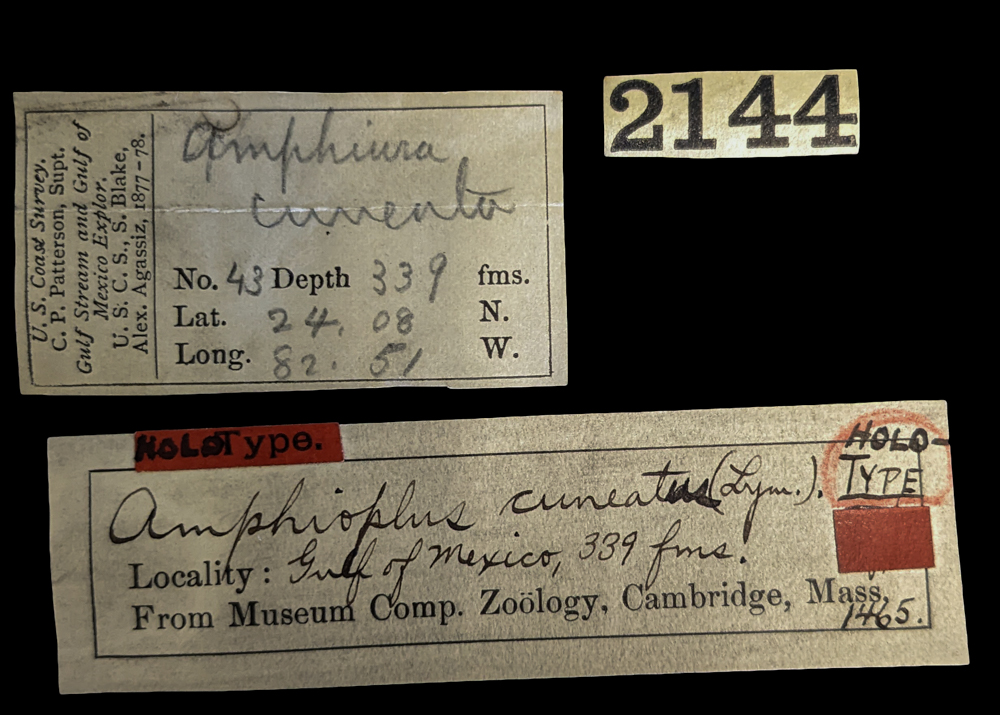 2144
U. S. Coast Survey.
C. P. Patterson, Supt.
Gulf Stream and Gulf of
Mexico Explor.
U. S. C. S., S. Blake,
Alex. Agassiz, 1877-78.
Amphiura
cuneata
No. 43 Depth 339 fms.
Lat. 24. 08 N.
Long. 82. 51 W.
HOLOType.
HOLO-
TYPE
Amphioplus cuneatus (Lym.).
Locality: Gulf of Mexico, 339 fms.
From Museum Comp. Zoölogy, Cambridge, Mass,
1465.